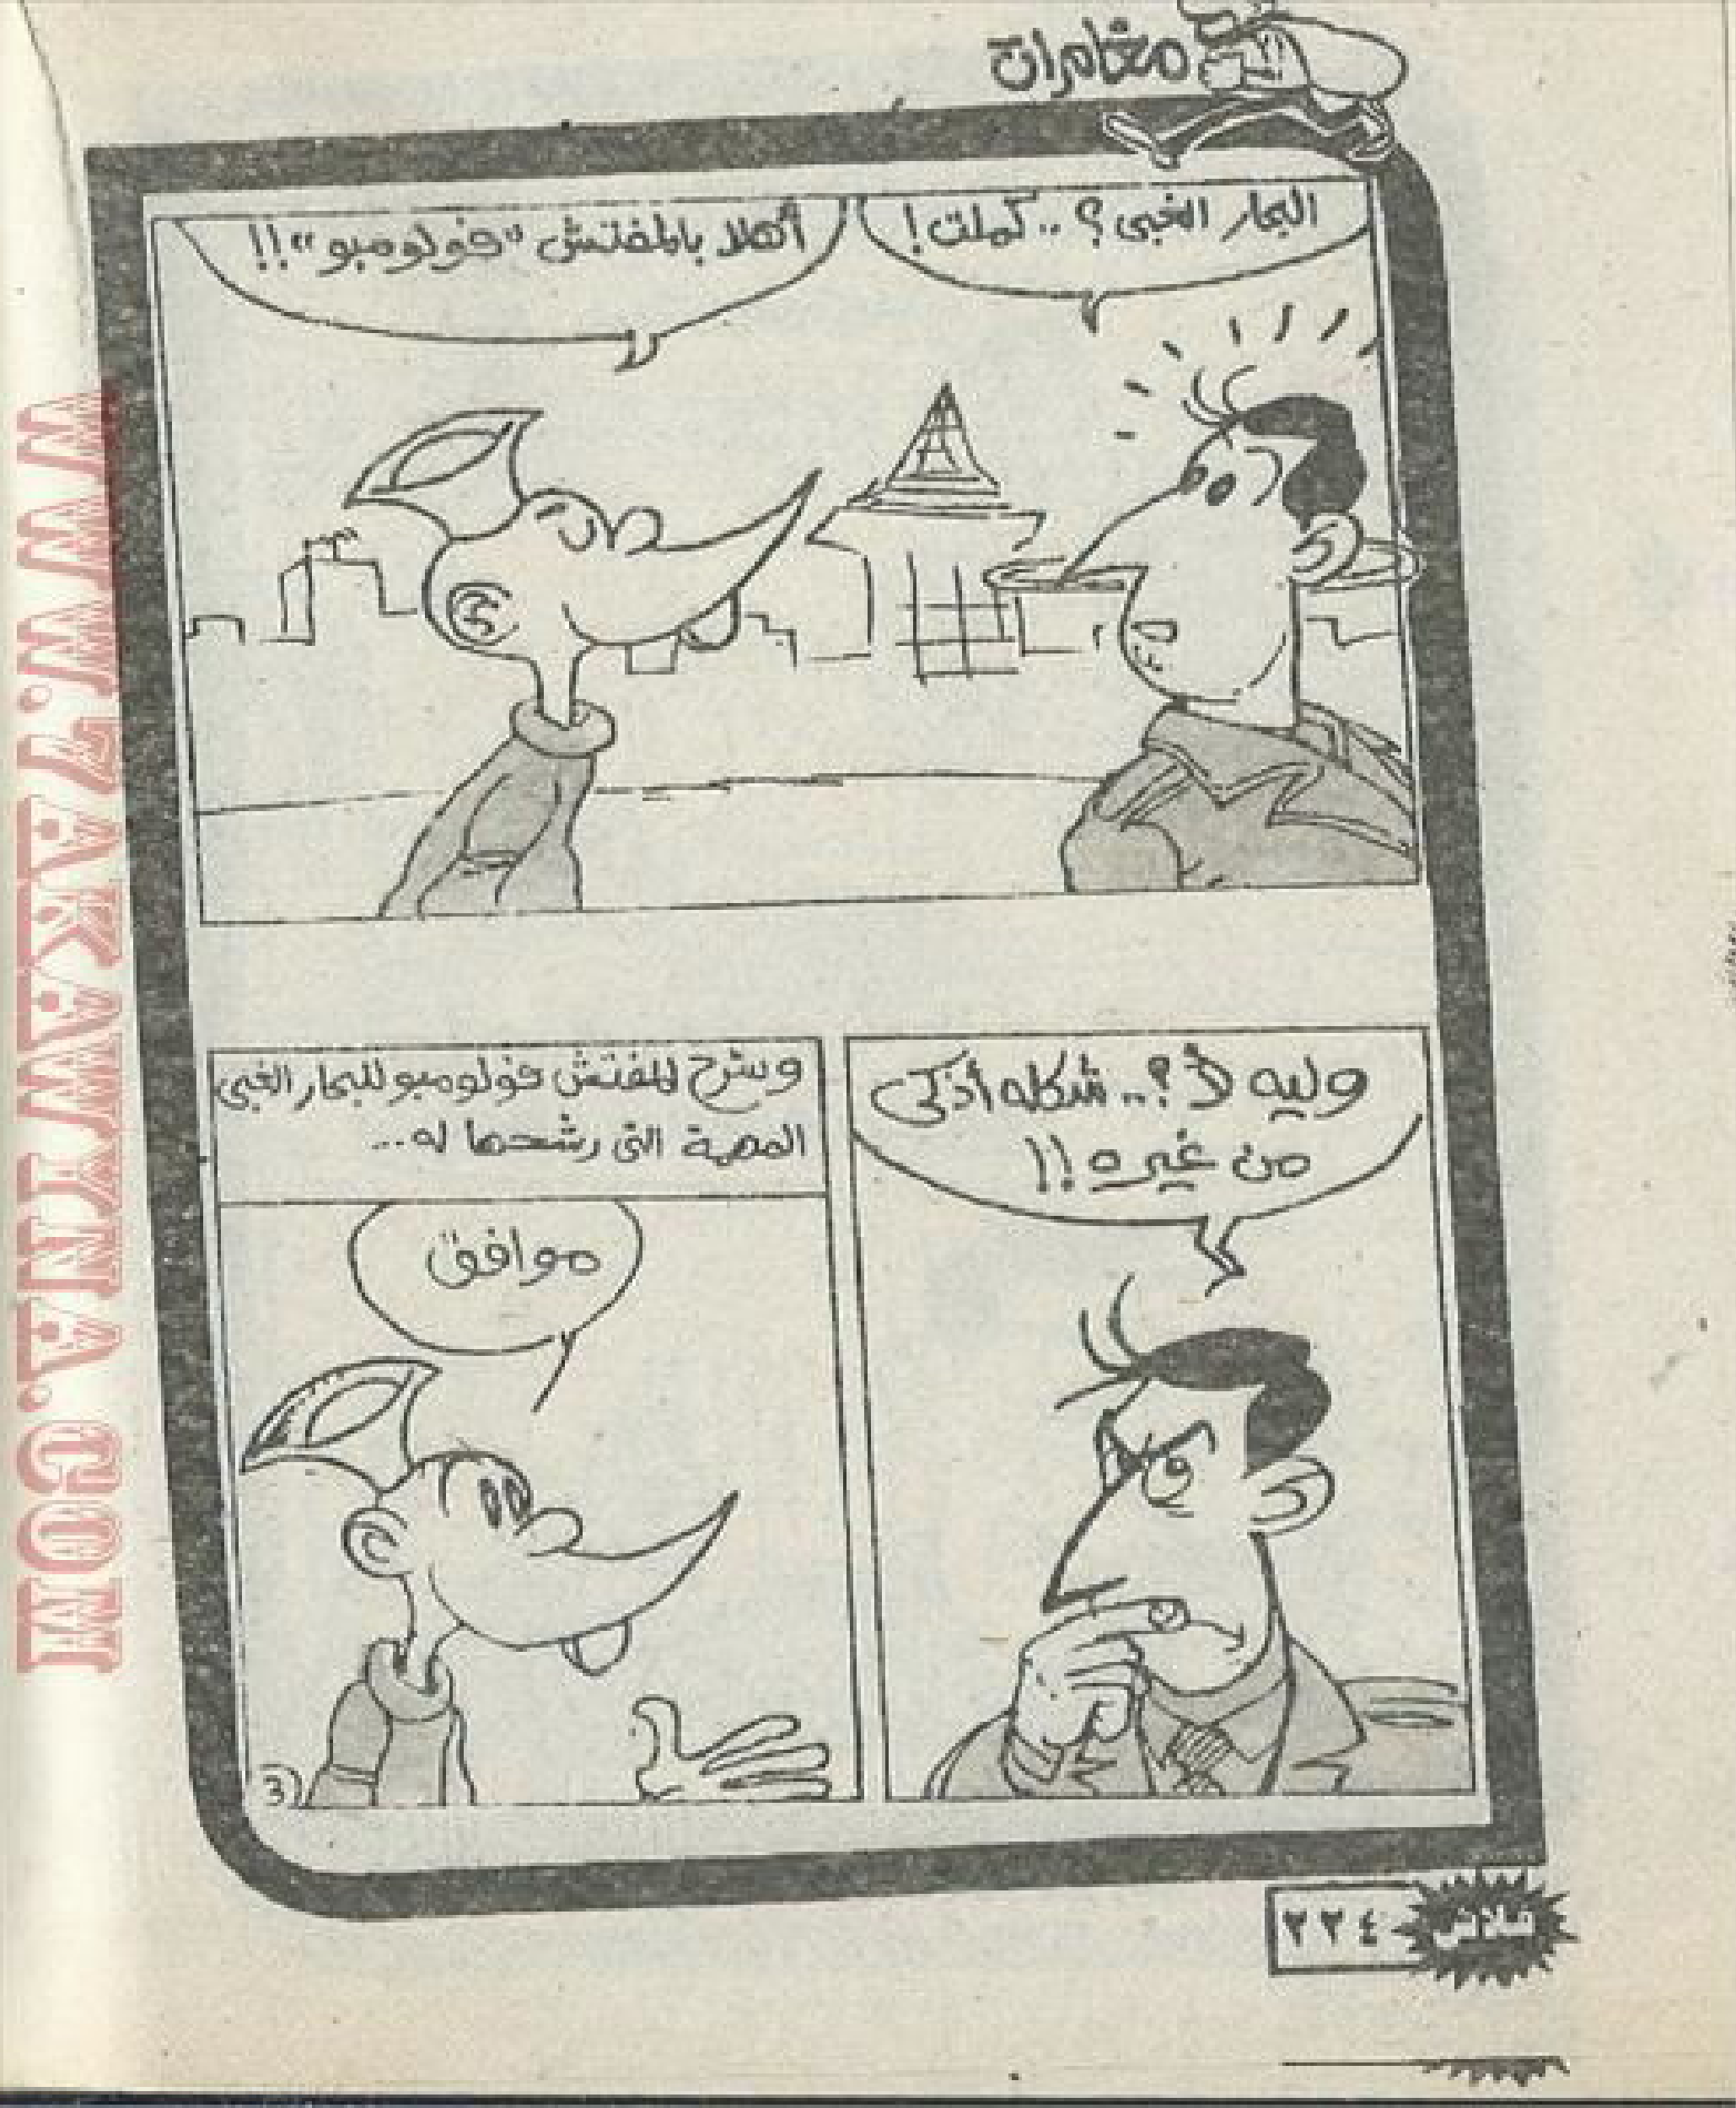 مغامرات
البحار الغبى ؟ .. كملت !
أهلا بالمفتش "فولومبو" !!
وليه لأ ؟.. شكله أذكى
من غيره !!
وشرح المفتش فولومبو للبحار الغبى
المهمة التى رشحها له ...
موافق
3
فلاش
٢٢٤
WWW.7AKAWTINA.COM